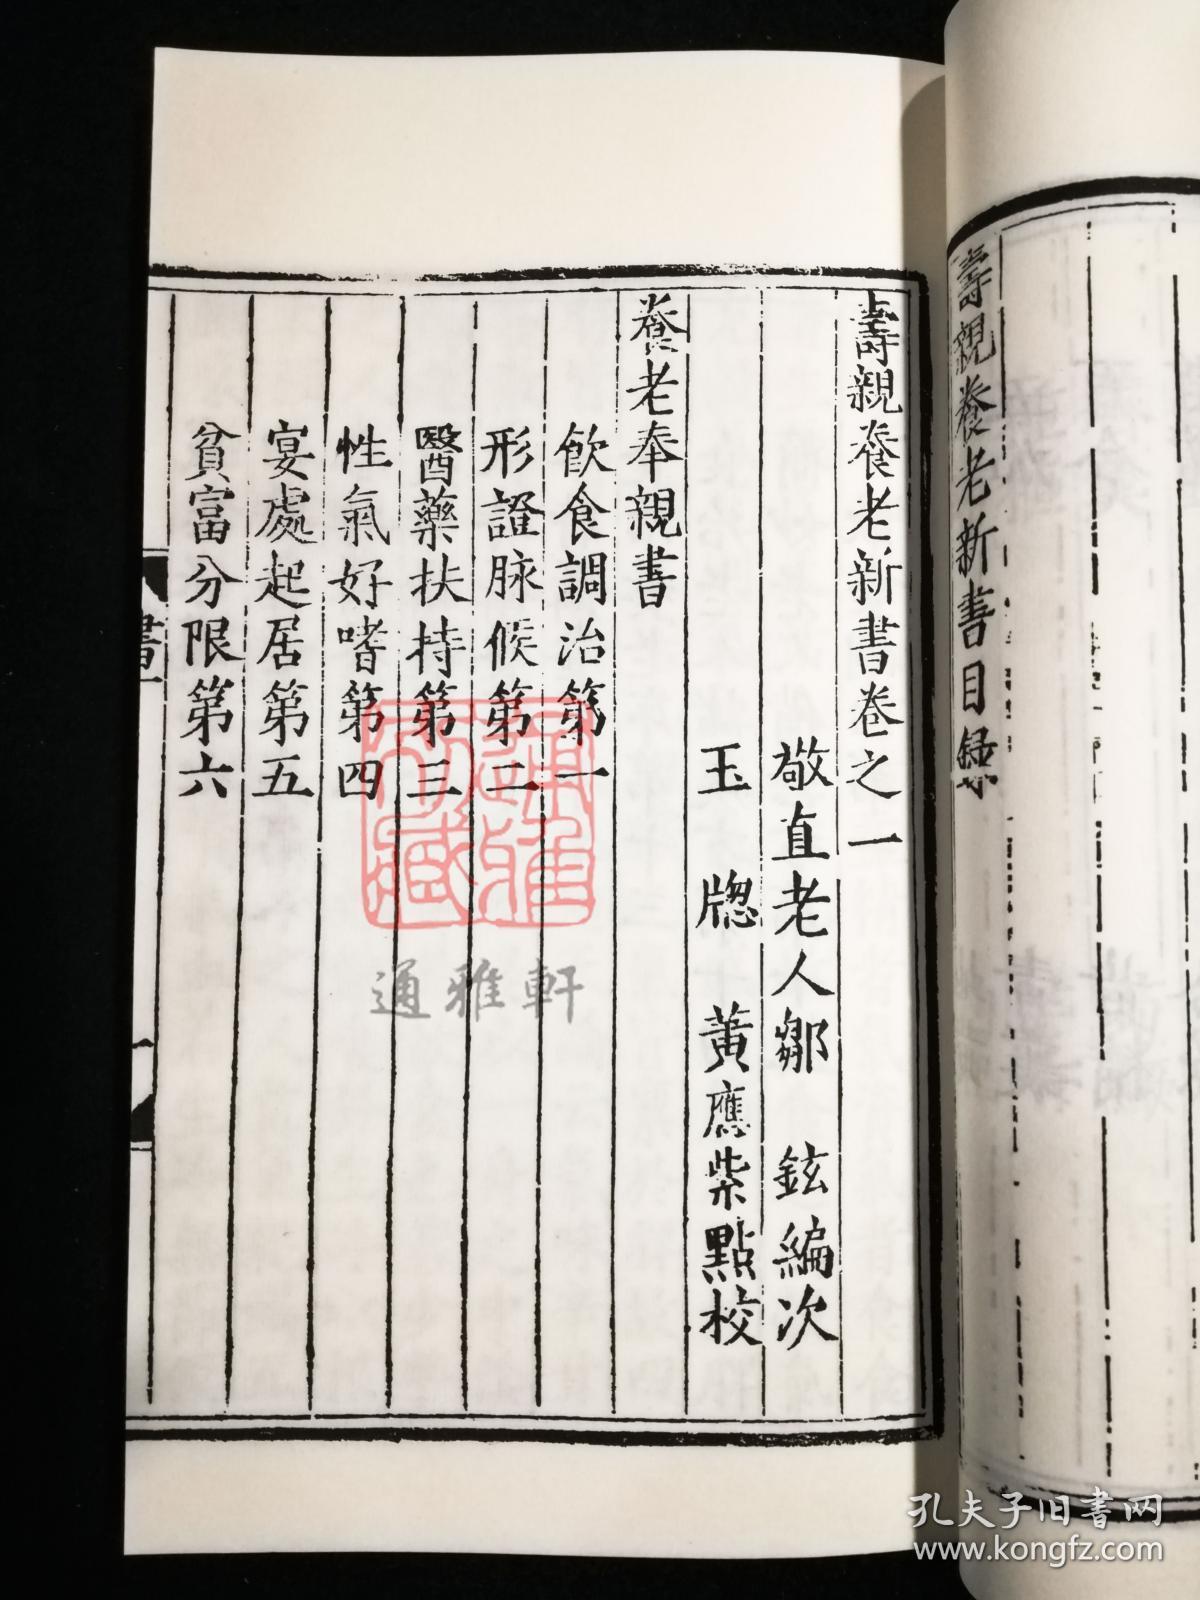 壽親養老新書目錄
壽親養老新書卷之一
敬直老人鄒 鉉編次
玉 牕 黃應紫點校
養老奉親書
飲食調治第一
形證脉候第二
醫藥扶持第三
性氣好嗜第四
宴處起居第五
貧富分限第六
書一
一
通雅軒
孔夫子旧书网
www.kongfz.com